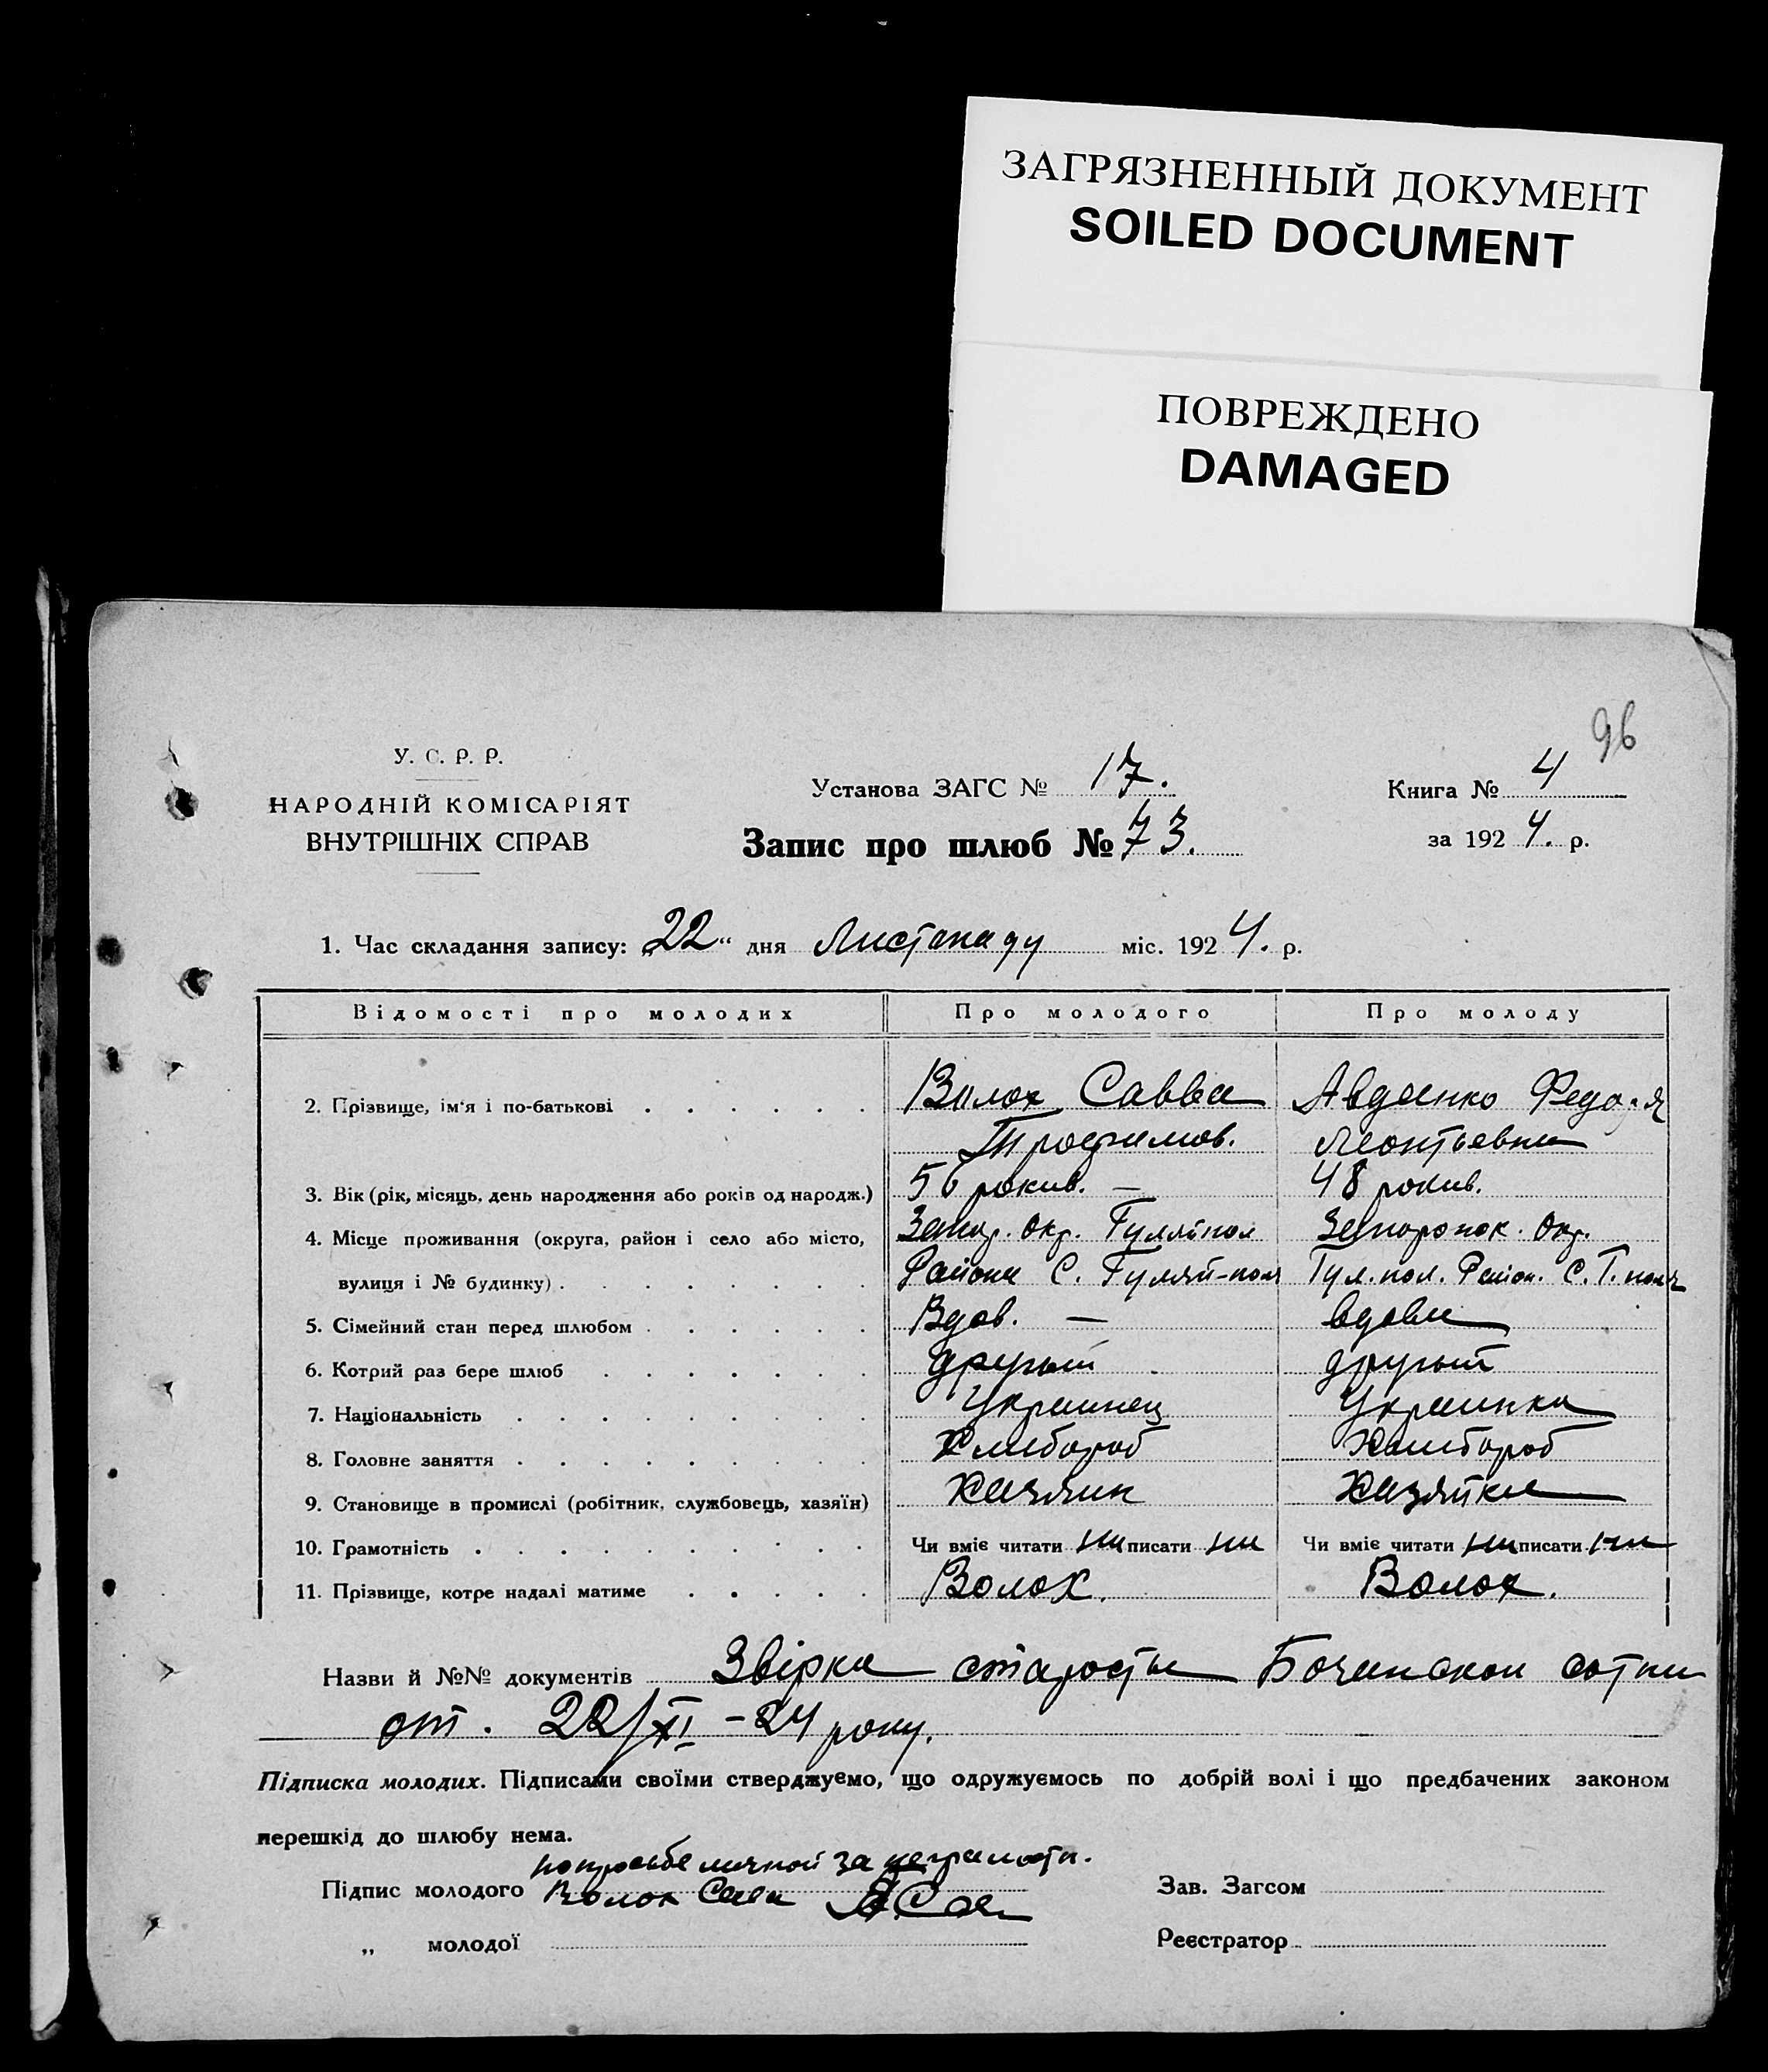 ЗАГРЯЗНЕННЫЙ ДОКУМЕНТ
SOILED DOCUMENT
ПОВРЕЖДЕНО
DAMAGED
96
У. С. Р. Р.
НАРОДНІЙ КОМІСАРІЯТ
ВНУТРІШНІХ СПРАВ
Установа ЗАГС № 17.
Запис про шлюб № 73.
Книга № 4
за 1924. р.
1. Час складання запису: „22“ дня Листопаду міс. 1924. р.
Відомості про молодих Про молодого Про молоду
2. Прізвище, ім'я і по-батькові Волох Савва Авдеенко
Трофимов. Леонтьевна
3. Вік (рік, місяць, день народження або років од народж.) 56 рокив. — 48 рокив.
4. Місце проживання (округа, район і село або місто, Запор. Окр. Гуляйпол Запорожск. Окр.
вулиця і № будинку) Района С. Гуляй-поля Гул. пол. Район. С. Г. поля
5. Сімейний стан перед шлюбом Вдов. — вдова
6. Котрий раз бере шлюб другый другый
7. Національність Украинец Украинка
8. Головне заняття Хлибороб Хлибороб
9. Становище в промислі (робітник, службовець, хазяїн) Хазяин Хазяйка
10. Грамотність Чи вміє читати ни писати ни Чи вміє читати ни писати ни
11. Прізвище, котре надалі матиме Волох. Волох.
Назви й №№ документів Звірка старосты сотни
от. 22/XI – 24 року.
Підписка молодих. Підписами своїми стверджуємо, що одружуємось по добрій волі і що предбачених законом
перешкід до шлюбу нема.
по просьбе личной за неграмотн.
Підпис молодого Волох Сава
„ молодої
Зав. Загсом
Реєстратор